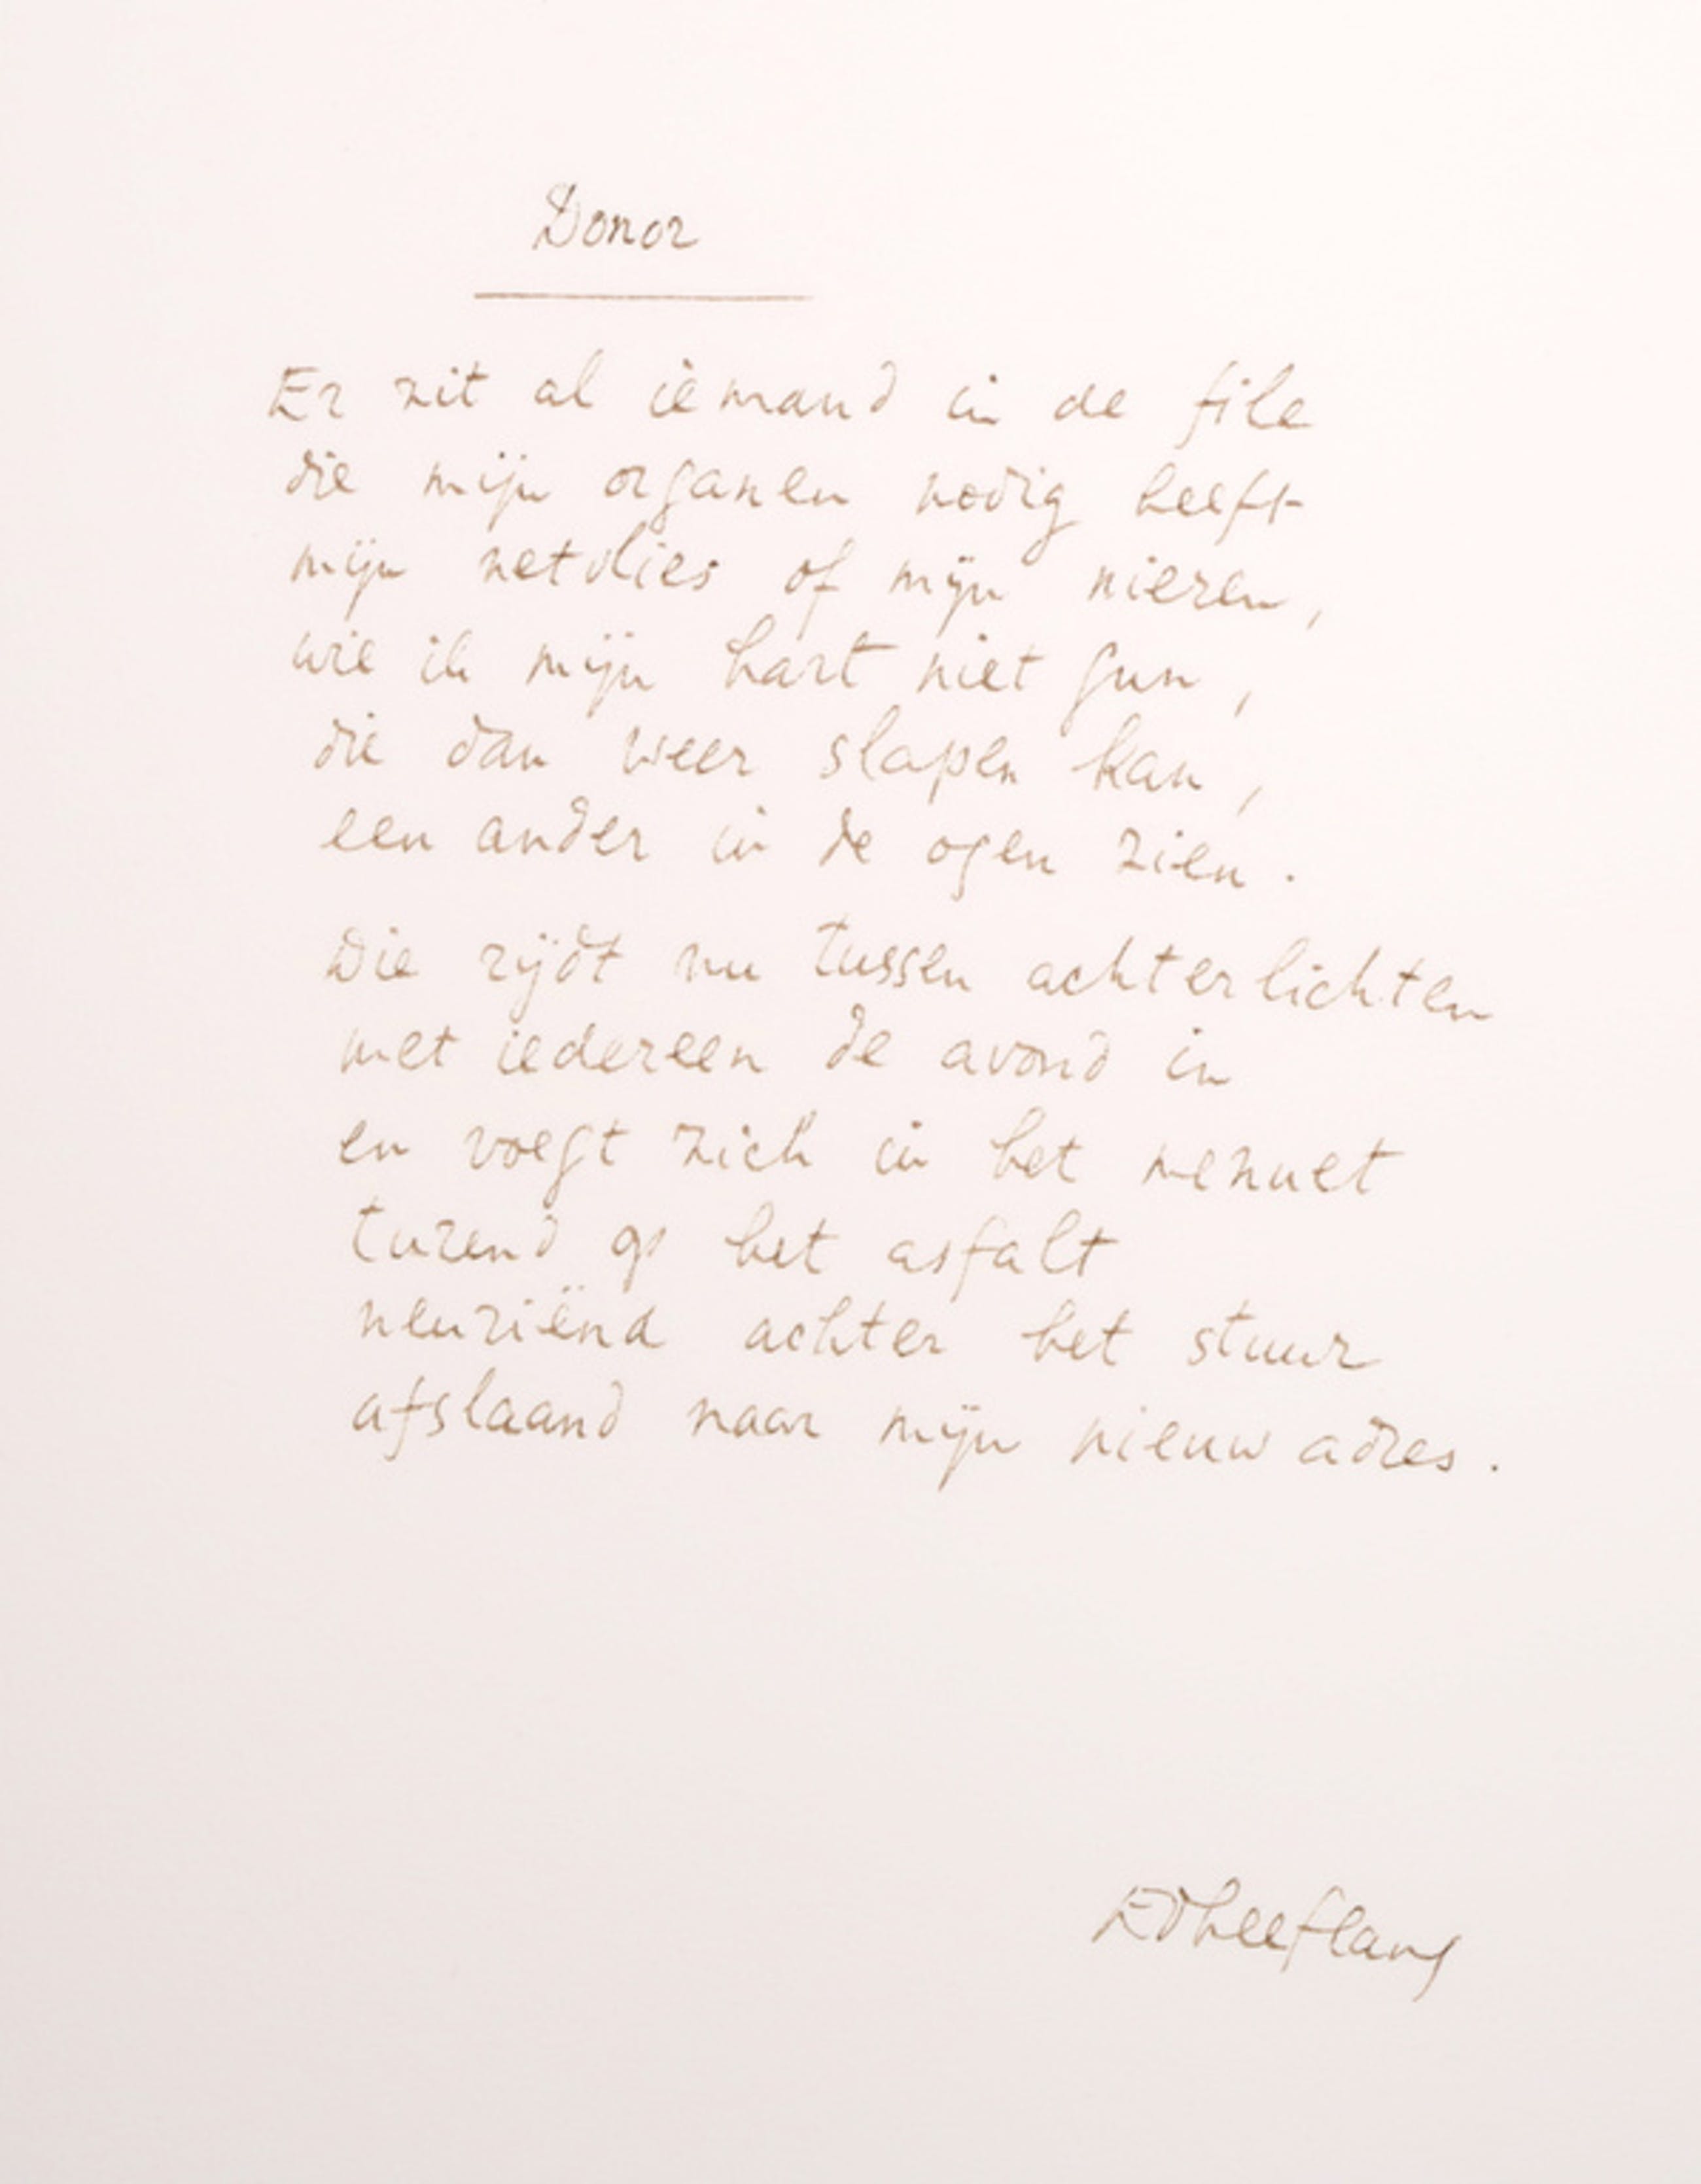 Donor
Er zit al iemand in de file
die mijn organen nodig heeft
mijn netvlies of mijn nieren,
wie ik mijn hart niet gun,
die dan weer slapen kan,
een ander in de ogen zien.
Die rijdt nu tussen achterlichten
met iedereen de avond in
en voegt zich in het menuet
turend op het asfalt
neuriënd achter het stuur
afslaand naar mijn nieuw adres.
Ed Leeflang